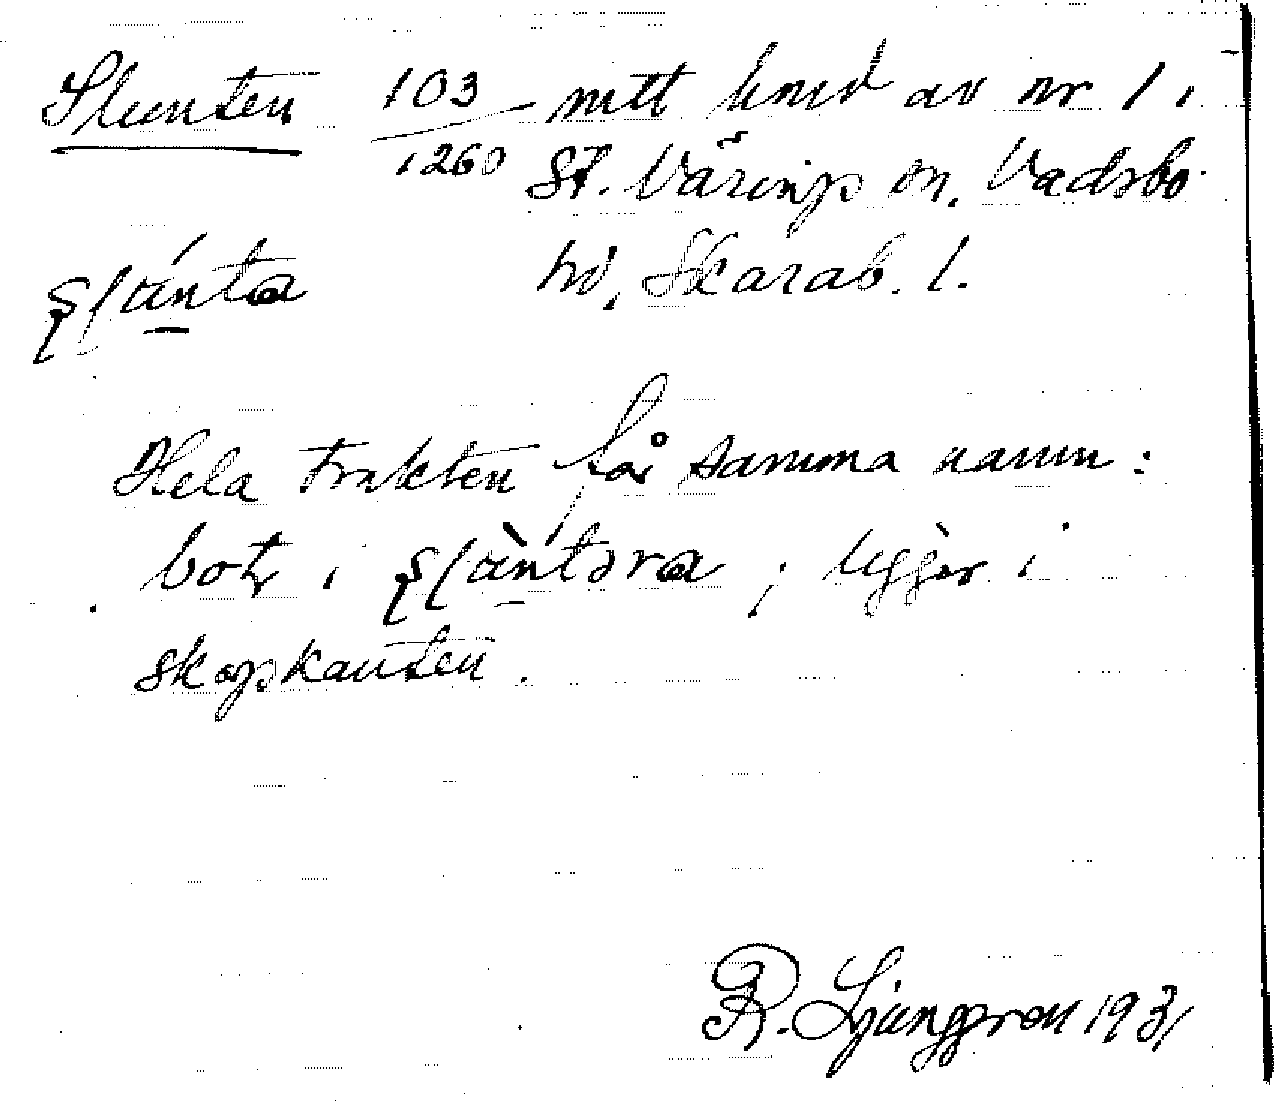 Slunten 103/1260 mitt emot av nr 1 i
St. Värings sn. Vadsbo
hd, Skarab. l.
ʂlánta
Hela trakten får samma namn:
bor i ʂlàntəra ; ligger i
skogskanten.
R. Ljunggren 1931